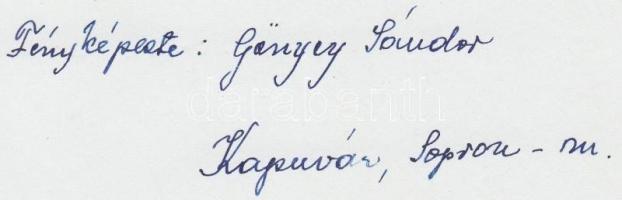 Fényképezte: Gönyey Sándor
darabanth
Kapuvár, Sopron - m.